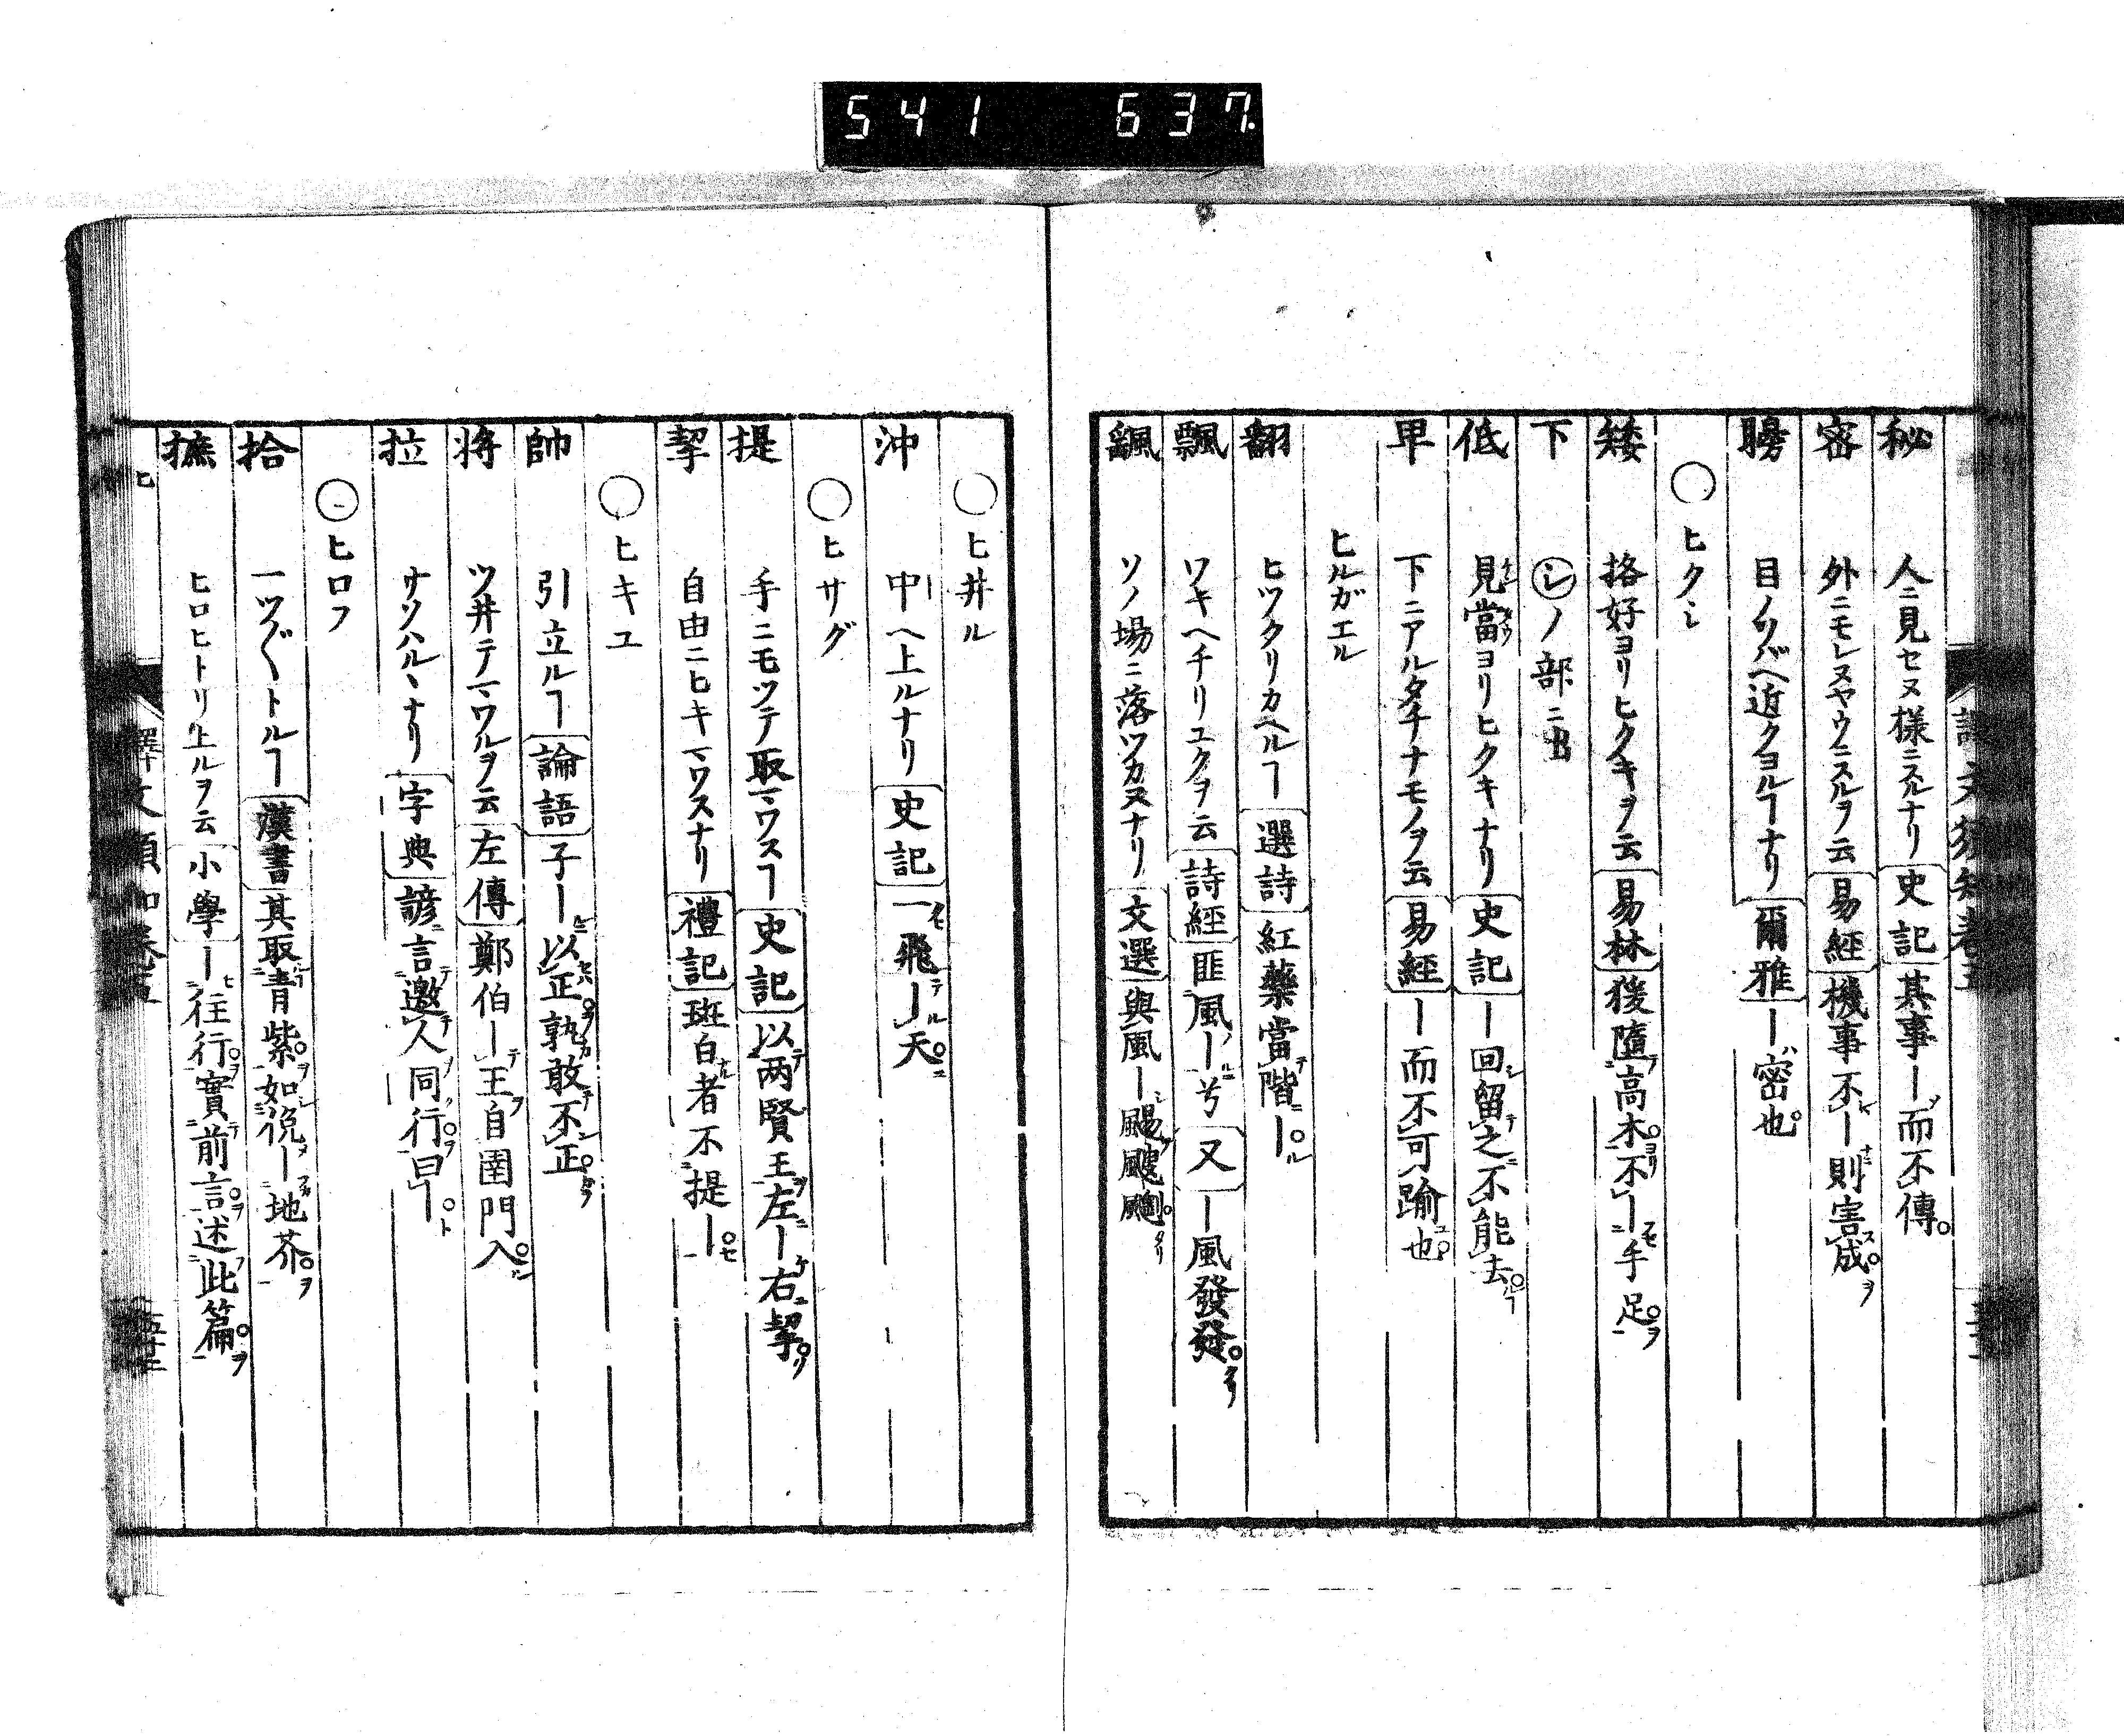 541 637.
秘 人ニ見セヌ様ニスルナリ 史記 其事ー而不傳。
密 外ニモレヌヤウニスルヲ云 易經 機事不ー則害成。
䏂 目ノウハベ近クヨルヿナリ 爾雅 ー密也。
○ヒクシ
矮 格好ヨリヒクキヲ云 易林 猨墮高木。不ー手足。
下 シノ部ニ出
低 見當ヨリヒクキナリ 史記 ー回留之不能去。
卑 下ニアルタチナモノヲ云 易經 ー而不可踰也。
ヒルガエル
翻 ヒツクリカヘルヿ 選詩 紅藥當階ー。
飄 ワキヘチリユクヲ云 詩經 匪風ー兮 又 ー風發發。
飜 ソノ場ニ落ツカヌナリ 文選 與風ー颺颼飀。
○ヒ井ル
沖 中ヘ上ルナリ 史記 一飛ー天。
○ヒサグ
提 手ニモツテ取マワスヿ 史記 以两賢王左ー右挈。
挈 自由ニヒキマワスナリ 禮記 斑白者不提ー。
○ヒキユ
帥 引立ルヿ 論語 子ー以正孰敢不正。
将 ツ井テマワルヲ云 左傳 鄭伯ー王自圉門入。
拉 サソハルヽナリ 字典 諺言邀人同行。曰ー。
○ヒロフ
拾 一ツヅヽトルヿ 漢書 其取青紫。如俛ー地芥。
摭 ヒロヒトリ上ルヲ云 小學 ー往行。實前言。述此篇。
ヒ